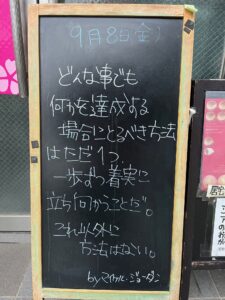 9月8日(金)
どんな事でも
何かを達成する
場合にとるべき方法
はただ1つ
一歩ずつ着実に
立ち向かうことだ。
これ以外に
方法はない。
byマイケル・ジョーダン